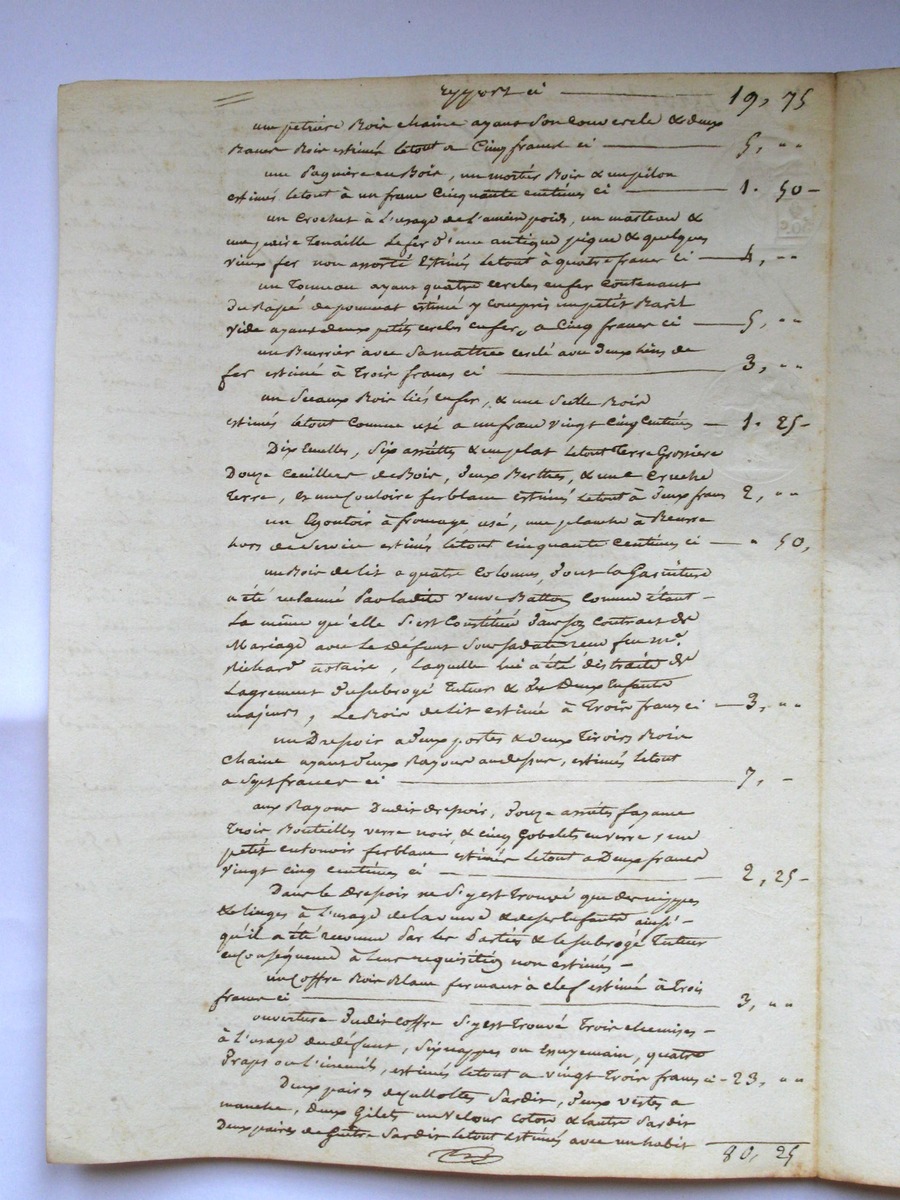 report ci 19, 75
une petriere Bois chaine ayant son couvercle & deux
Bancs Bois estimés letout a Cinq francs ci 5, " "
une Pagniere en Bois, un mortier Bois & un pilon
estimés letout à un franc Cinquante centimes ci 1. 50
un Crochet à l'usage de poids, un marteau &
une paire Tenaille le fer d'une antique pique & quelques
vieux fer non assorté Estimés letout à quatre francs Ci 4, " "
un Tonneau ayant quatre cercles en fer contenant
du Rapé de pommat estimé y compris un petit Baril
vide ayant deux petits cercles en fer, a Cinq francs ci 5, " "
un Beurrier avec sa cerclé avec deux liens de
fer estimé à Trois francs ci 3, " "
un Seaux Bois liés en fer, & une Seille Bois
estimés letout Comme usé a un franc vingt Cinq Centimes 1. 25
Dix Ecuelles, Six assiettes & un plat letout Terre Grossiere
Douze Ceuilleres de Bois, Deux Berthes, & une Cruche
Terre, & une Couloire ferblanc estimés letout à Deux francs 2, " "
un Egoutoir à fromage usé, une planche à Beurre
hors de Service estimés letout cinquante Centimes ci " 50,
un Bois de lit a quatre Colonnes, dont la Garniture
a été reclamée Par ladite veuve Batton Comme étant
la même qu'elle s'est Constitué dans son Contract de
Mariage avec le Défunt Sous sa date reçu feu me
Richard notaire, Laquelle lui a été distraite de
Lagrement du subrogé Tuteur & des Deux Enfants
majeurs, Le Bois de lit estimé à Trois francs ci 3, " "
un Drepoir a deux portes & deux Tiroirs Bois
Chaine ayant deux Rayons au depur, estimés letout
a Sept francs ci 7, -
aux Rayons Dudit drepoir, Douze assiettes fayance
Trois Bouteilles verre noir, & cinq Gobelets en verre, un
petit entonoir ferblanc estimés letout a Deux francs
vingt cinq centimes ci 2, 25
Dans le Drepois ne S'y est Trouvé que des nippes
& linges à l'usage de la veuve & de ses Enfants ainsi
qu'il a été reconnu Par les Parties & le subrogé Tuteur
en Conséquence à leur requisition non estimés
un Coffre Bois Blanc fermant à clef estimé à Trois
francs ci 3, " "
ouverture dudit Coffre S'y est Trouvé Trois chemises
à l'usage du défunt, Six nappes ou Essuyemain, quatre
Draps ou linceuils, estimés letout a vingt Trois francs ci 23, " "
Deux paires de Cullottes Sardis, deux vestes a
manche, deux Gilets un Velour coton & l'autre Sardis
Deux paires de Guetre Sardis letout estimés avec un habit
80, 25